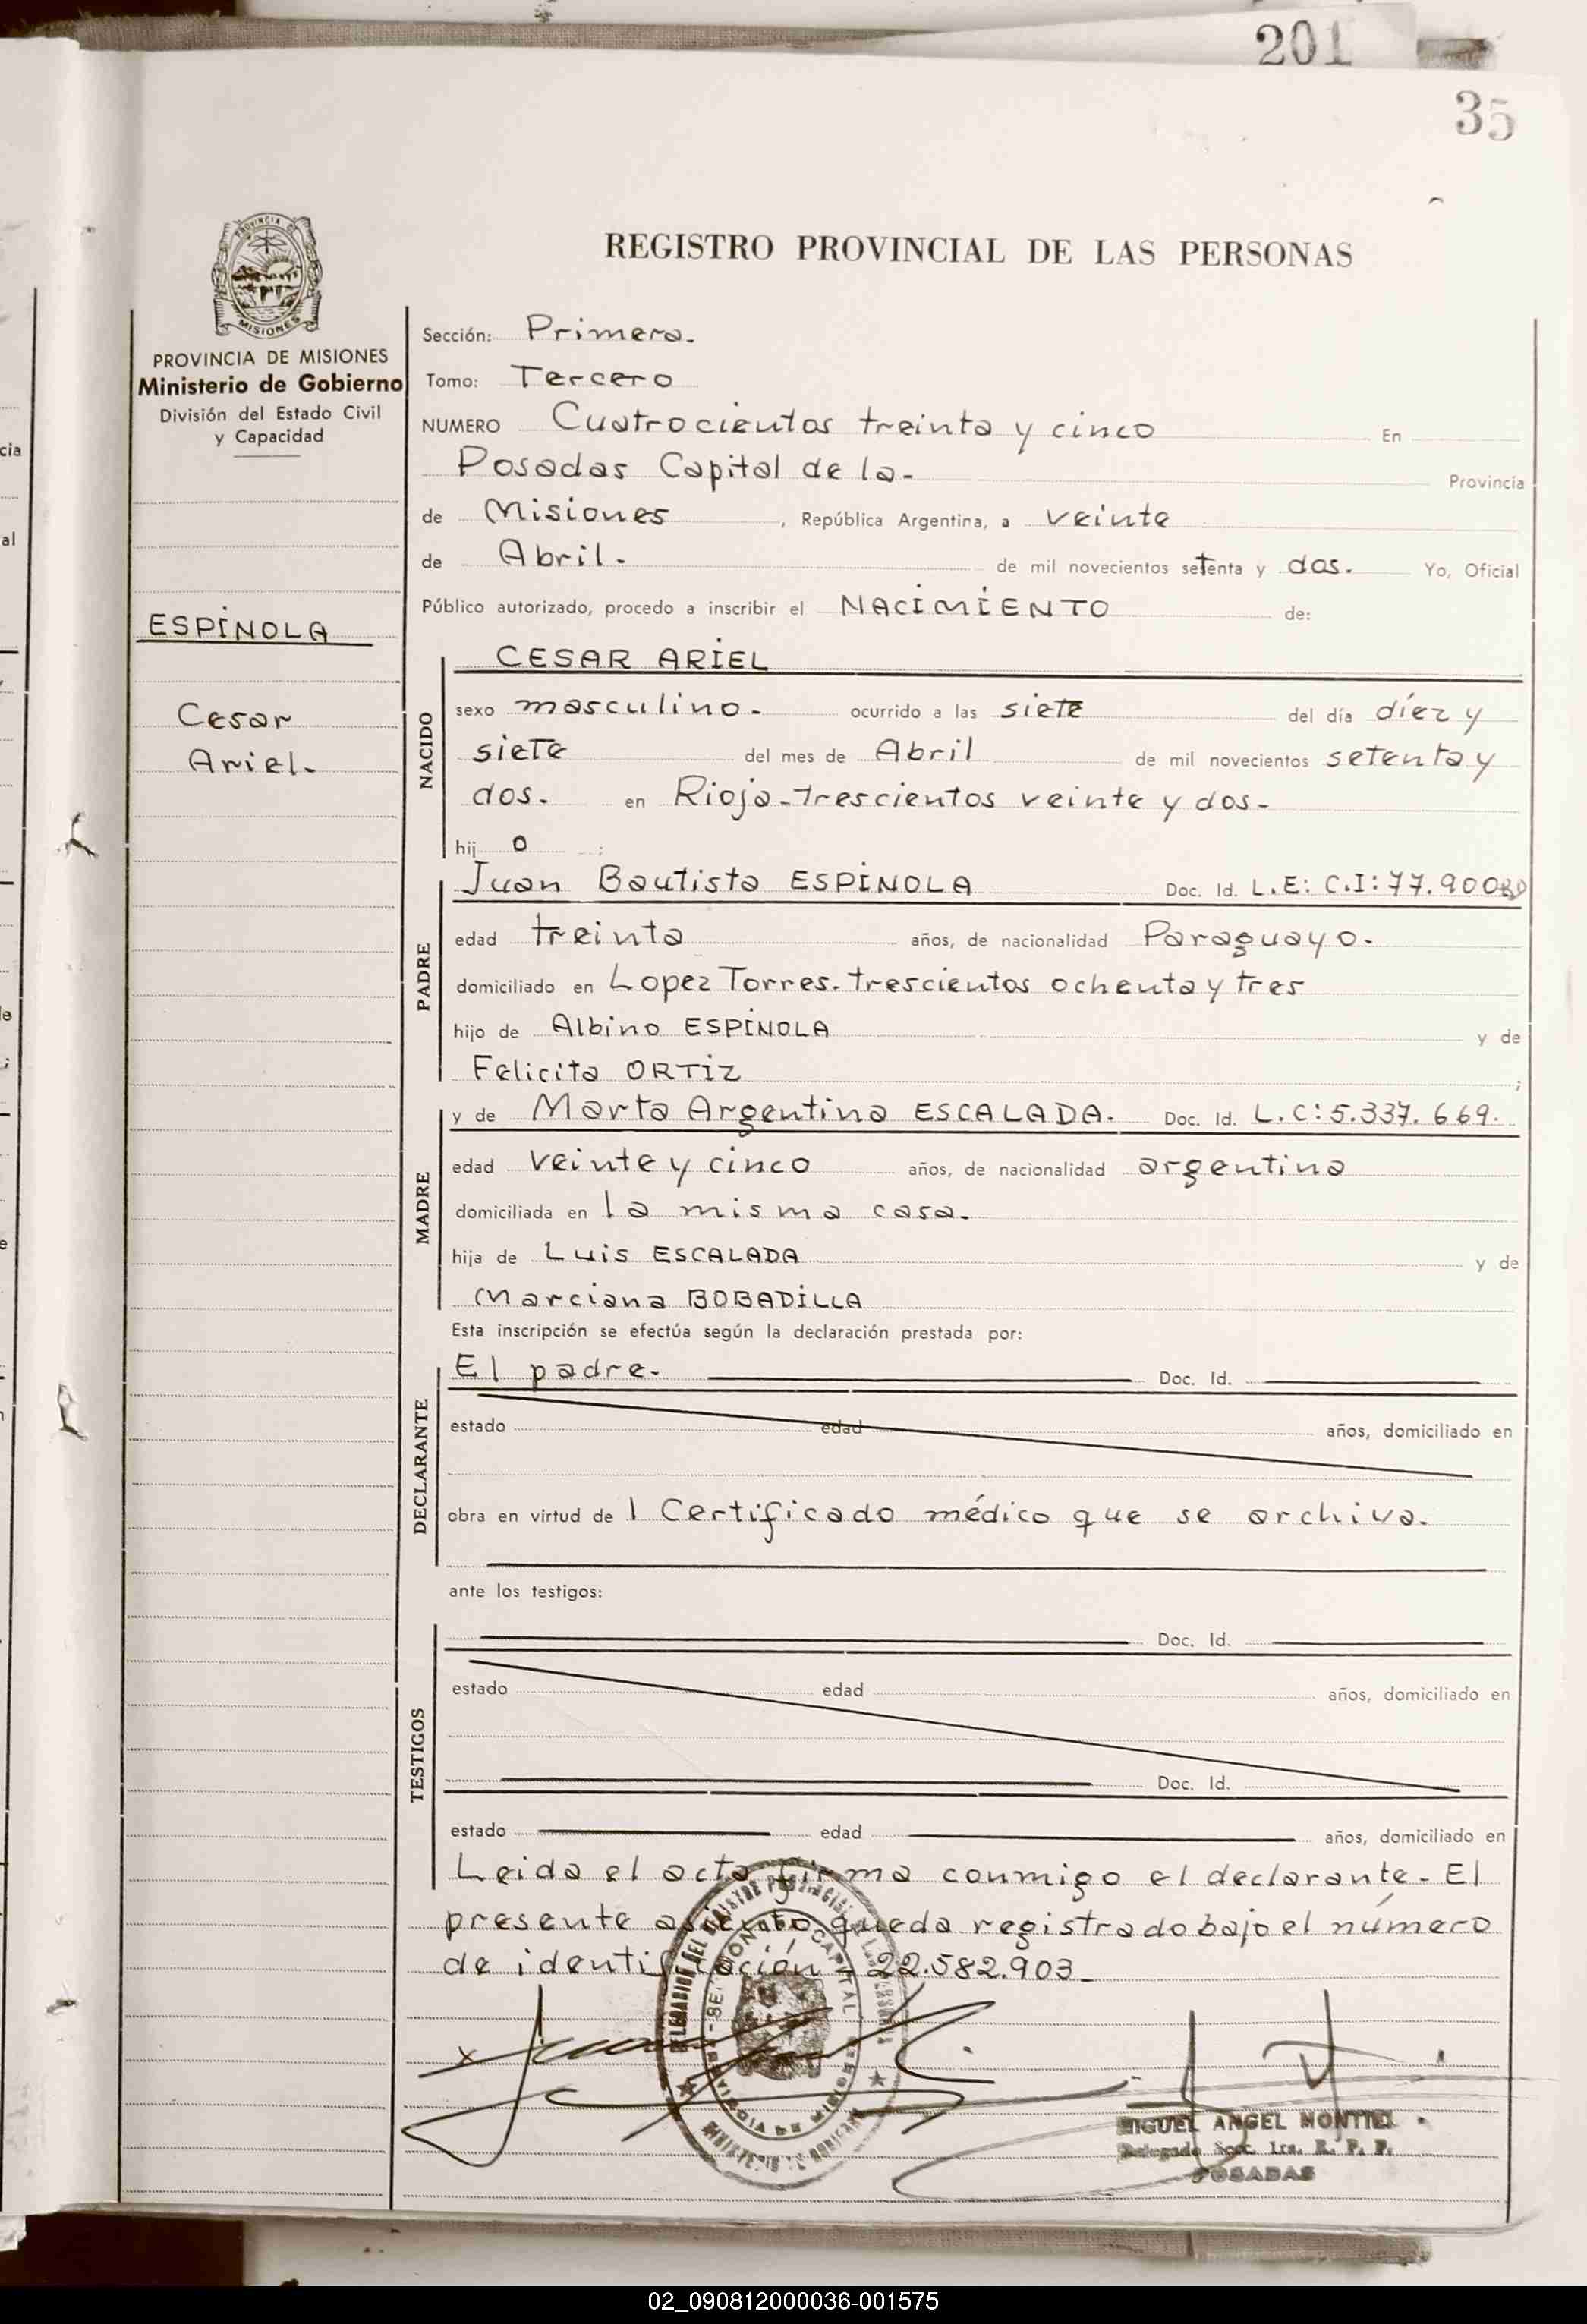 201
35
PROVINCIA DE
MISIONES
REGISTRO PROVINCIAL DE LAS PERSONAS
PROVINCIA DE MISIONES
Ministerio de Gobierno
División del Estado Civil
y Capacidad
ESPINOLA
Cesar
Ariel.
Sección: Primera.
Tomo: Tercero
NUMERO Cuatrocientos treinta y cinco En
Posadas Capital de la. Provincia
de Misiones, República Argentina, a veinte
de Abril. de mil novecientos setenta y dos. Yo, Oficial
Público autorizado, procedo a inscribir el NACIMIENTO de:
NACIDO
CESAR ARIEL
sexo masculino. ocurrido a las siete del día díez y
siete del mes de Abril de mil novecientos setenta y
dos. en Rioja-trescientos veinte y dos-
hij o ;
PADRE
Juan Bautista ESPINOLA Doc. Id. L.E: C.I: 77.900
edad treinta años, de nacionalidad Paraguayo.
domiciliado en Lopez Torres. trescientos ochenta y tres
hijo de Albino ESPINOLA y de
Felicita ORTIZ ;
MADRE
y de Marta Argentina ESCALADA. Doc. Id. L.C: 5.337.669.
edad veinte y cinco años, de nacionalidad argentina
domiciliada en la misma casa.
hija de Luis ESCALADA y de
Marciana BOBADILLA
Esta inscripción se efectúa según la declaración prestada por:
DECLARANTE
El padre. Doc. Id.
estado edad años, domiciliado en
obra en virtud de 1 Certificado médico que se archiva.
ante los testigos:
TESTIGOS
Doc. Id.
estado edad años, domiciliado en
Doc. Id.
estado edad años, domiciliado en
Leida el acta firma conmigo el declarante. El
presente asiento queda registrado bajo el número
de identificación - 22.582.903-
MIGUEL ANGEL MONTIEL
Delegado Secc. 1ra. R. P. P.
POSADAS
02_090812000036-001575